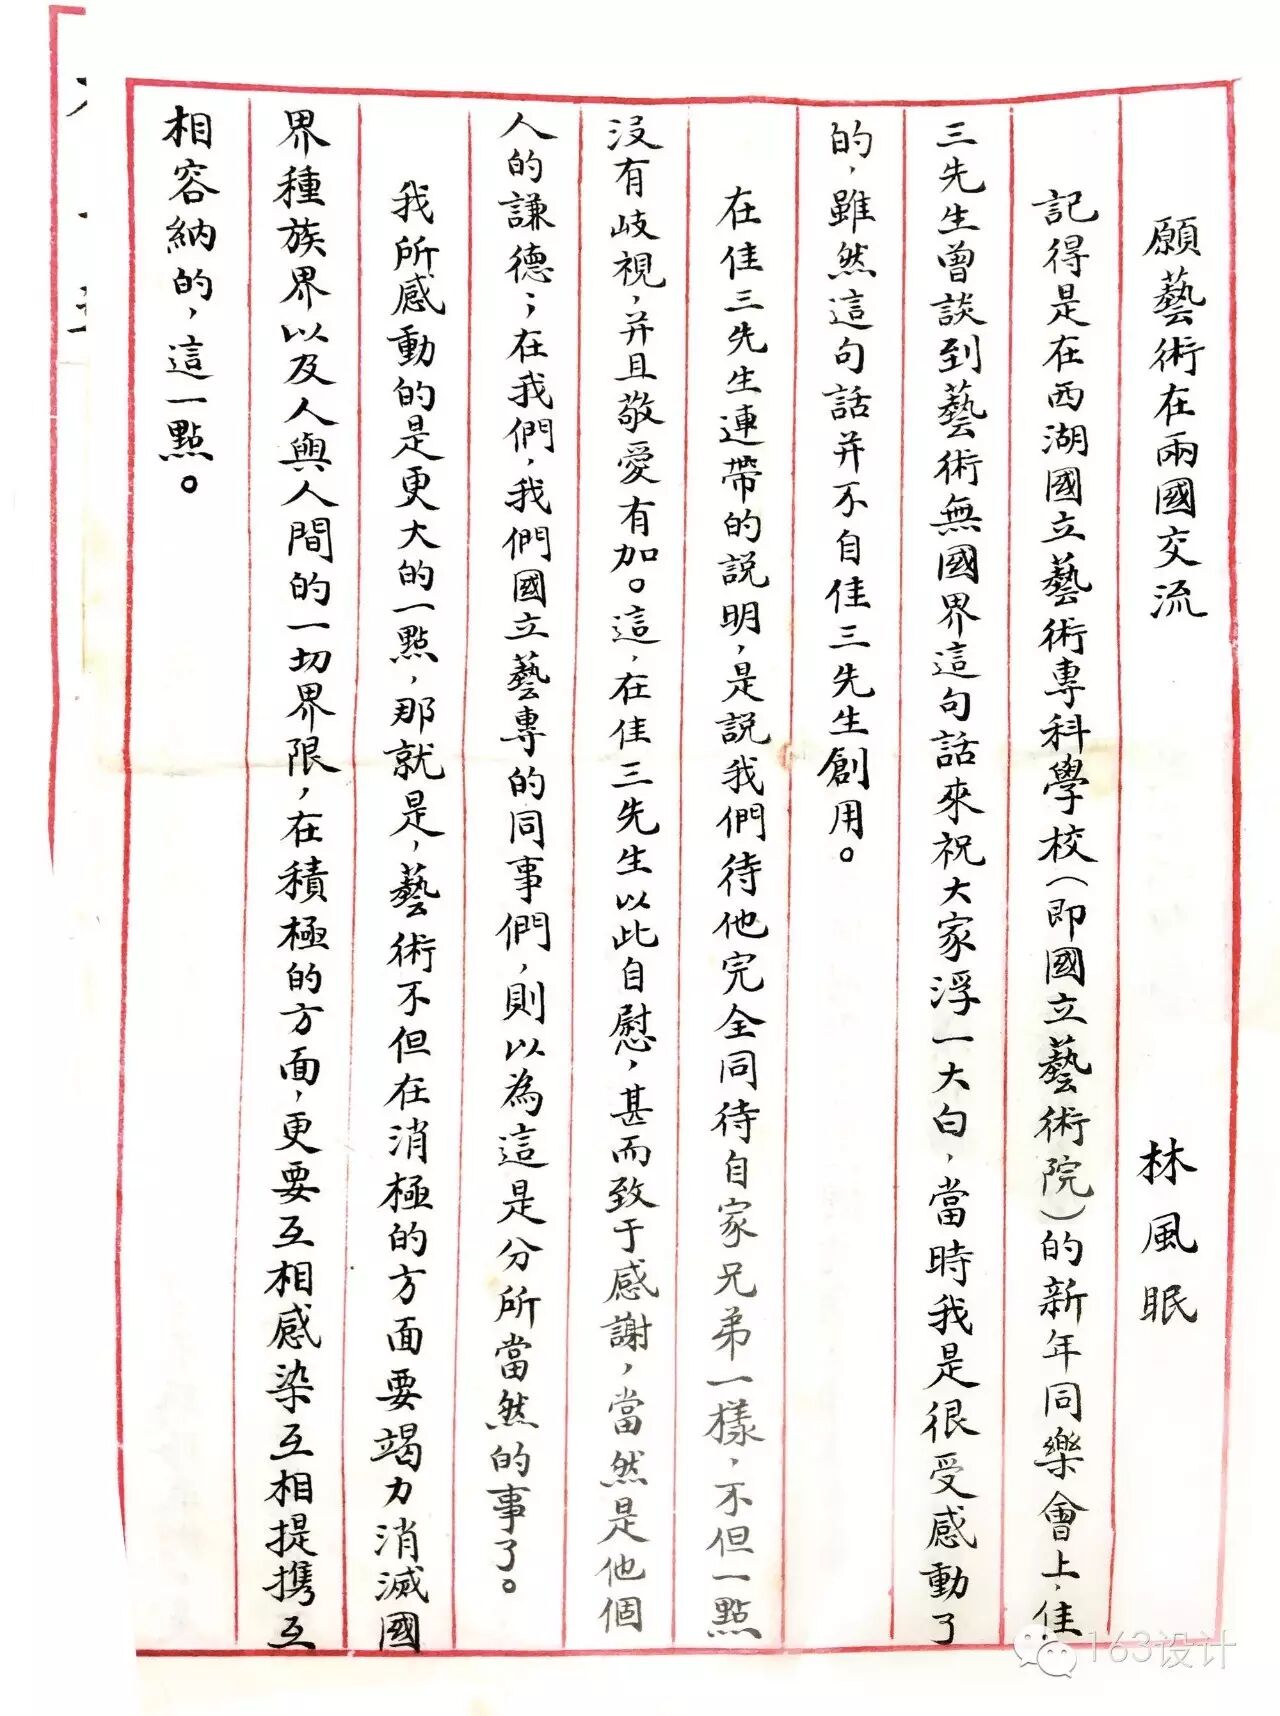 願藝術在兩國交流 林風眠
記得是在西湖國立藝術專科學校（即國立藝術院）的新年同樂會上，佳
三先生曾談到藝術無國界這句話來祝大家浮一大白，當時我是很受感動了
的，雖然這句話并不自佳三先生創用。
在佳三先生連帶的説明，是説我們待他完全同待自家兄弟一樣，不但一點
没有歧視，并且敬愛有加。這，在佳三先生以此自慰，甚而致于感謝，當然是他個
人的謙德；在我們，我們國立藝專的同事們，則以為這是分所當然的事了。
我所感動的是更大的一點，那就是，藝術不但在消極的方面要竭力消滅國
界種族界以及人與人間的一切界限，在積極的方面，更要互相感染互相提携互
相容納的，這一點。
163设计